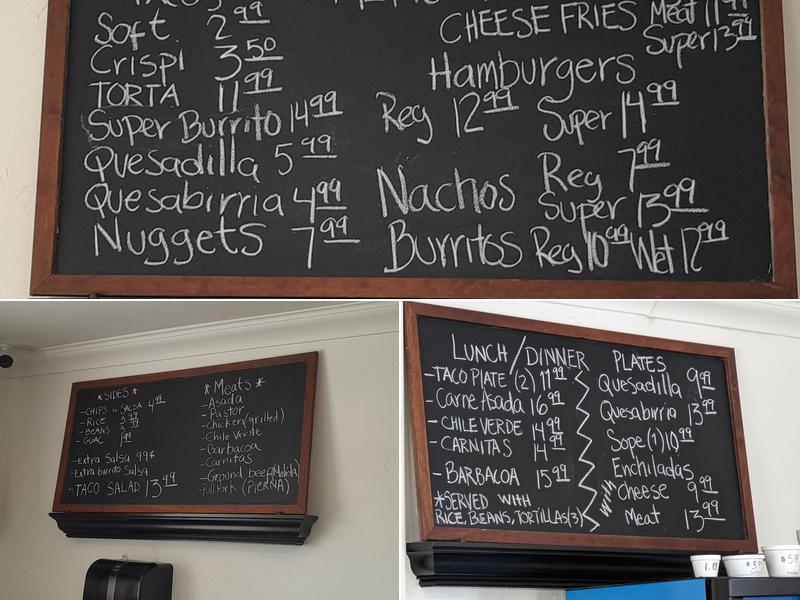 Soft 2.99
Crispi 3.50
TORTA 11.99
Super Burrito 14.99
Quesadilla 5.99
Quesabirria 4.99
Nuggets 7.99
CHEESE FRIES Meat 11.99
Super 13.99
Hamburgers
Reg 12.99 Super 14.99
Nachos Reg 7.99
Super 13.99
Burritos Reg 10.99 Wet 12.99
*SIDES*
-CHIPS N SALSA 4.99
-RICE 3.99
-BEANS 3.99
-GUAC 1.99
-Extra Salsa 99¢
-Extra burrito Salsa
-TACO SALAD 13.99
*Meats*
-Asada
-Pastor
-chicken (grilled)
-Chile Verde
-Barbacoa
-Carnitas
-Ground beef (Molida)
-Pull Pork (PIERNA)
LUNCH/DINNER PLATES
-TACO PLATE (2) 11.99
-Carne Asada 16.99
-CHILE VERDE 14.99
-CARNITAS 14.99
-BARBACOA 15.99
*SERVED WITH
RICE, BEANS, TORTILLAS(3)
Quesadilla 9.99
Quesabirria 13.99
Sope (1) 10.99
Enchiladas
With Cheese 9.99
Meat 13.99